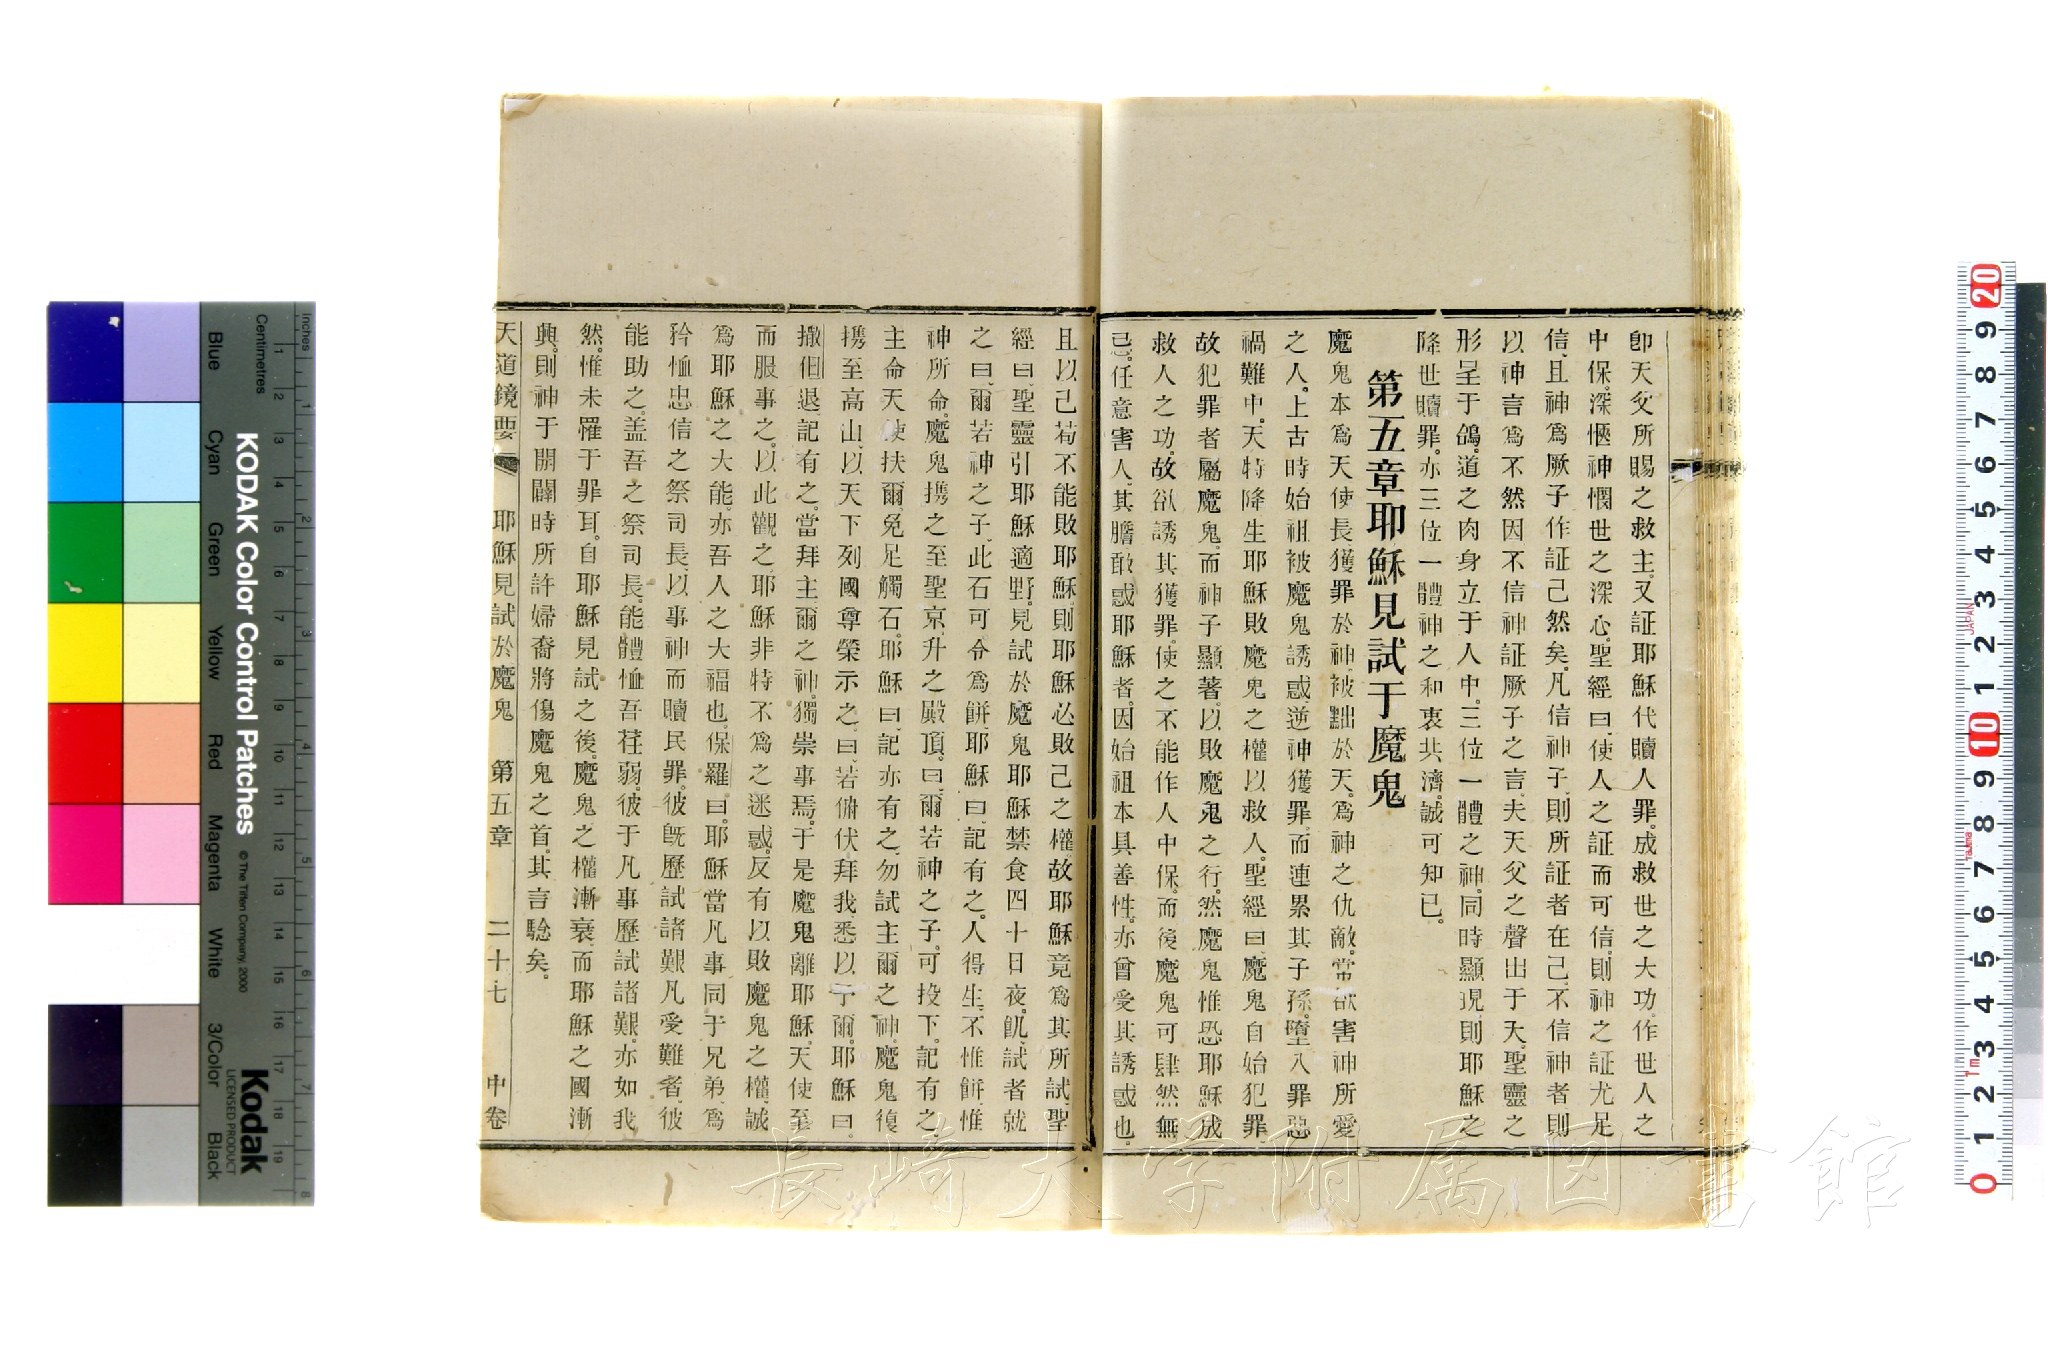 卽天父所賜之救主。又証耶穌代贖人罪。成救世之大功。作世人之
中保。深愜神憫世之深心。聖經曰、使人之証而可信、則神之証尤足
信、且神爲厥子作証己然矣。凡信神子、則所証者在己、不信神者、則
以神言爲不然、因不信神証厥子之言、夫天父之聲出于天、聖靈之
形呈于鴿。道之肉身立于人中。三位一體之神、同時顯現、則耶穌之
降世贖罪。亦三位一體神之和衷共濟。誠可知已。
第五章耶穌見試于魔鬼
魔鬼本爲天使長、獲罪於神、被黜於天。爲神之仇敵。常欲害神所愛
之人。上古時始祖被魔鬼誘惑、逆神獲罪、而連累其子孫。墮入罪惡
禍難中。天特降生耶穌、敗魔鬼之權、以救人。聖經曰、魔鬼自始犯罪
故犯罪者屬魔鬼。而神子顯著。以敗魔鬼之行。然魔鬼惟恐耶穌成
救人之功。故欲誘其獲罪。使之不能作人中保。而後魔鬼可肆然無
忌。任意害人、其膽敢惑耶穌者、因始祖本具善性。亦曾受其誘惑也。
且以己苟不能敗耶穌、則耶穌必敗己之權、故耶穌竟爲其所試、聖
經曰、聖靈引耶穌適野。見試於魔鬼、耶穌禁食四十日夜。飢、試者就
之曰、爾若神之子、此石可令爲餅、耶穌曰、記有之。人得生、不惟餅、惟
神所命。魔鬼携之至聖京、升之殿頂。曰、爾若神之子。可投下。記有之。
主命天使扶爾、免足觸石。耶穌曰、記亦有之、勿試主爾之神。魔鬼復
携至高山、以天下列國尊榮示之。曰、若俯伏拜我、悉以予爾。耶穌曰。
撒但退、記有之。當拜主爾之神。獨崇事焉。于是魔鬼離耶穌。天使至
而服事之。以此觀之、耶穌非特不爲之迷惑。反有以敗魔鬼之權、誠
爲耶穌之大能。亦吾人之大福也。保羅曰。耶穌當凡事同于兄弟。爲
矜恤忠信之祭司長、以事神而贖民罪。彼旣歷試諸艱、凡受難者、彼
能助之。盖吾之祭司長、能體恤吾荏弱。彼于凡事歷試諸艱、亦如我
然。惟未罹于罪耳。自耶穌見試之後。魔鬼之權漸衰、而耶穌之國漸
興。則神于開闢時所許婦裔將傷魔鬼之首。其言騐矣。
天道鏡要　耶穌見試於魔鬼　第五章　二十七　中卷
KODAK Color Control Patches
© The Tiffen Company, 2000
Kodak
LICENSED PRODUCT
Inches
Centimetres
Blue
Cyan
Green
Yellow
Red
Magenta
White
3/Color
Black
JAPAN
Tajima
長崎大学附属図書館